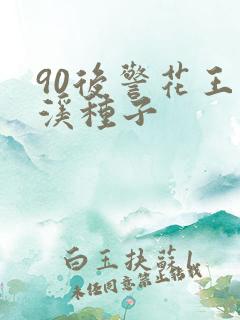 90後警花王
溪種子
白玉扶蘇1
未任同意禁止轉載